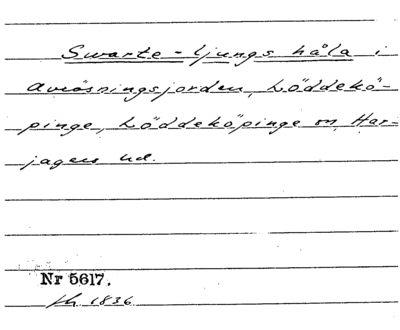 Swarte-ljungs håla i
avrösningsjorden, Löddekö-
pinge, Löddeköpinge sn, Har-
jagers hd.
Nr 5617.
1836